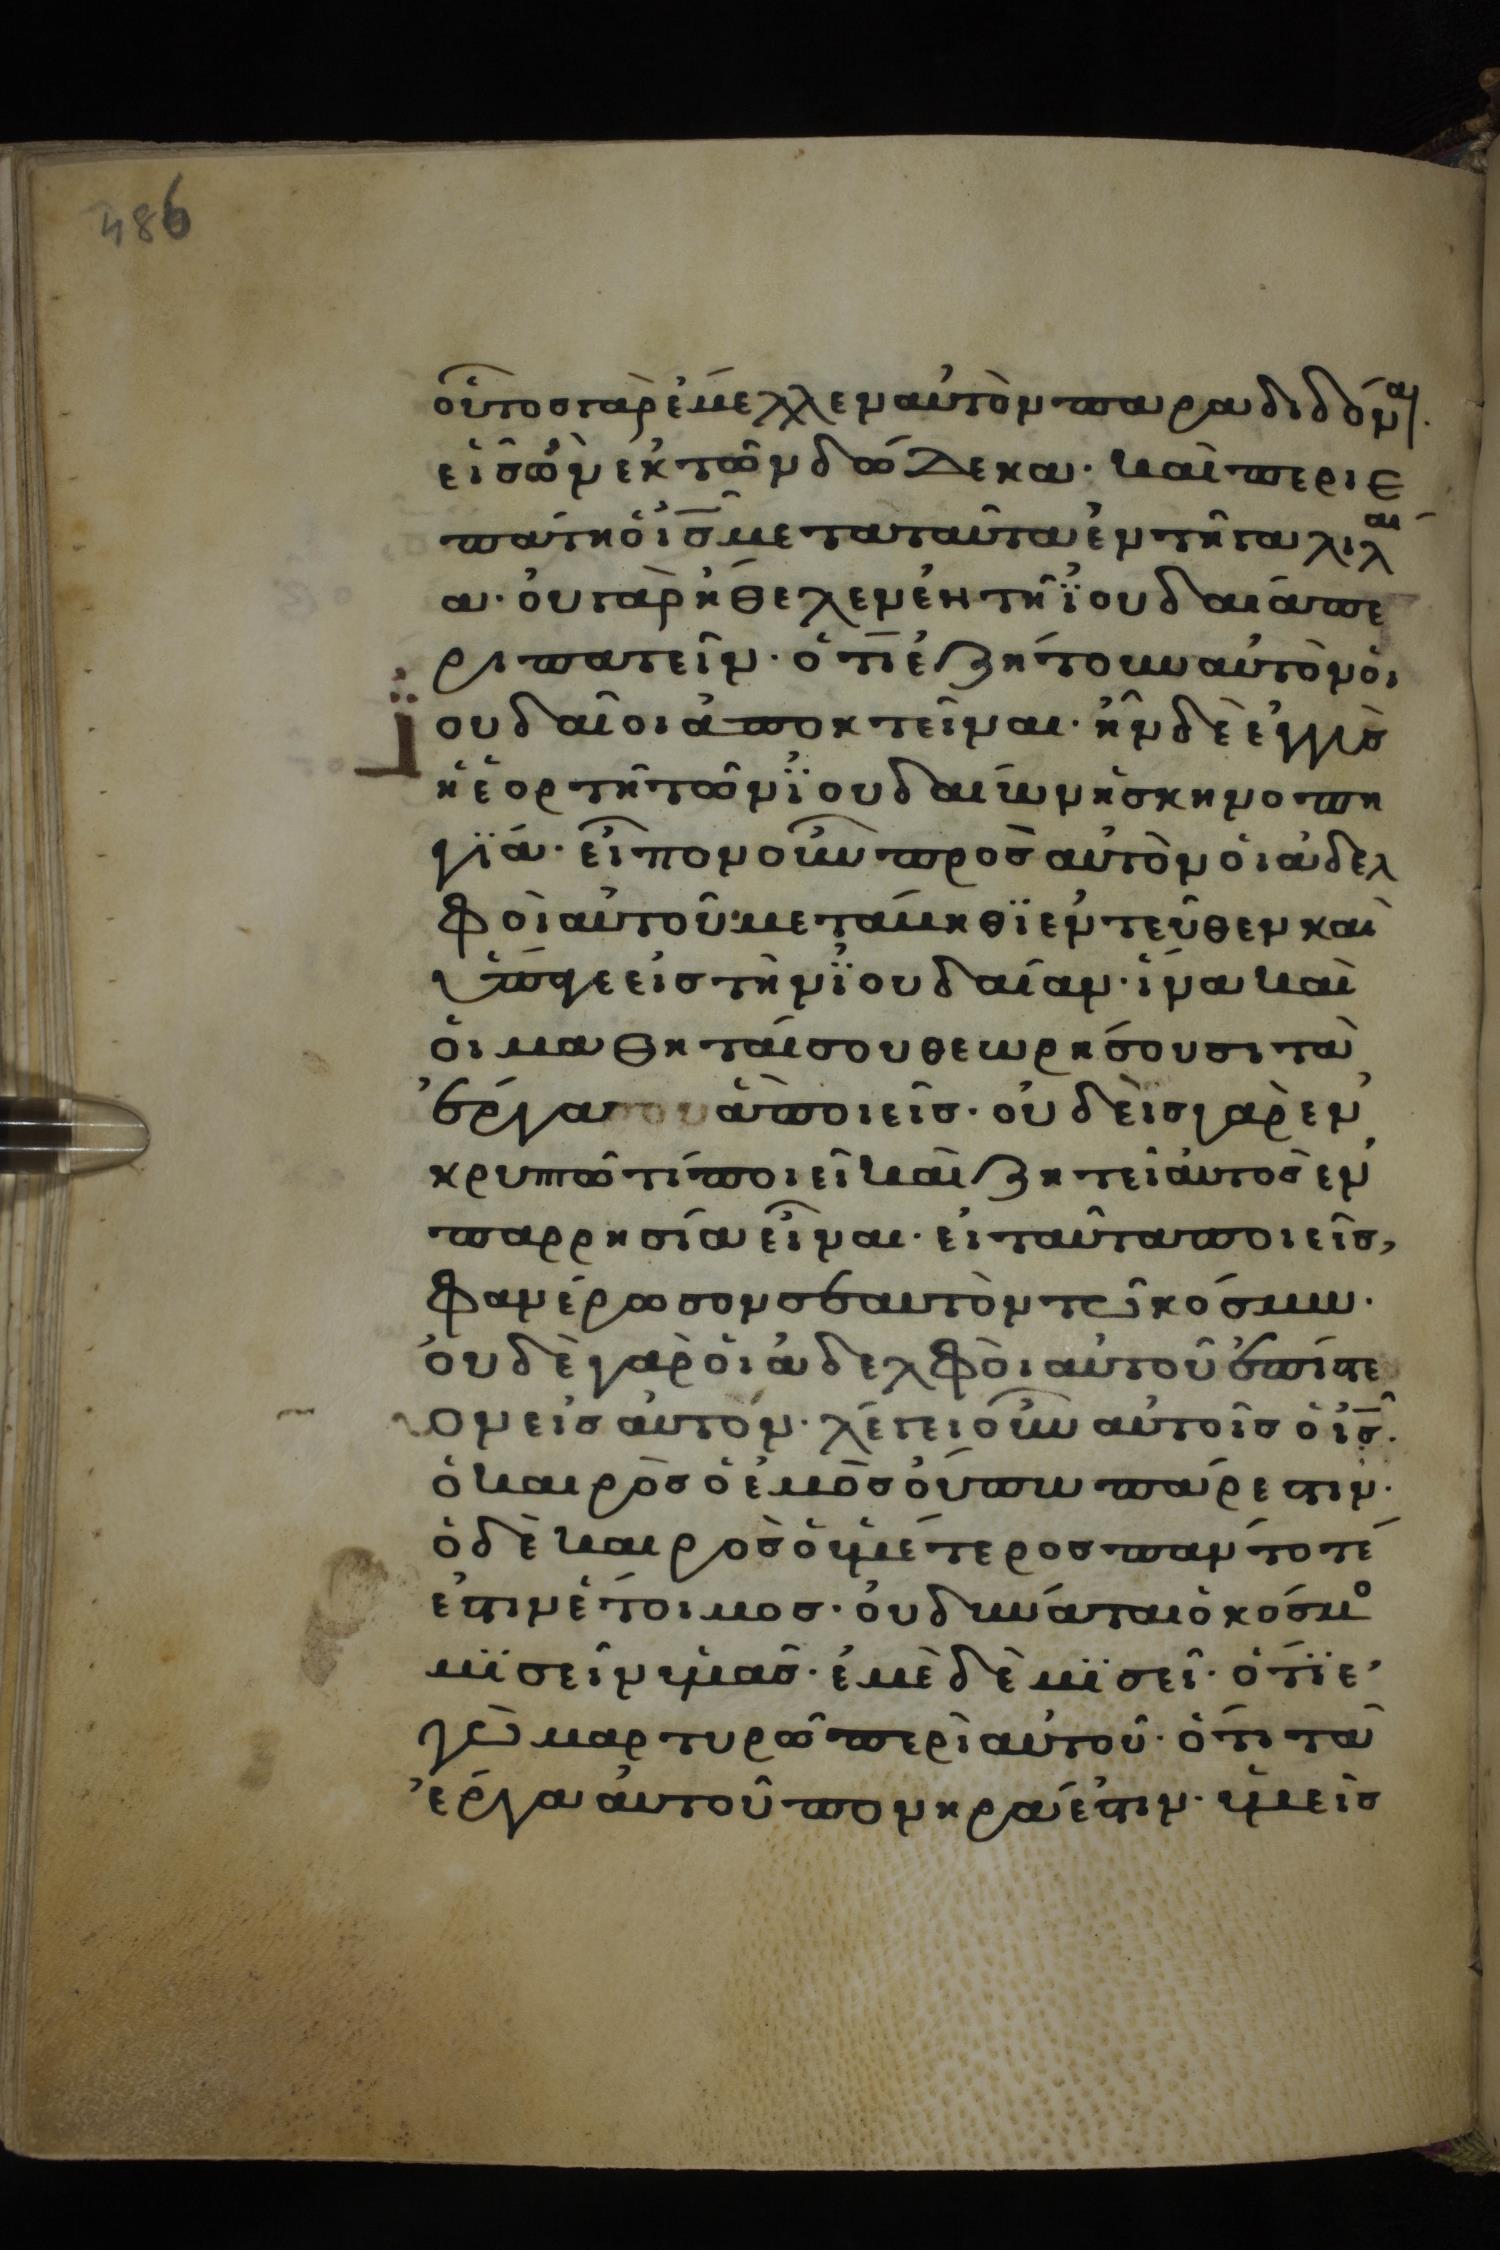 486
οὗτοσ γὰρ ἔμελλεν αὐτὸν παραδιδόν(αι)·
εἷσ ὢν ἐκ τῶν δώδεκα· καὶ περιε
πάτει ὁ ισ̅ μετα ταῦτα ἐν τῆ γαλιλαί
α· οὐ γὰρ ἤθελεν ἐν τῆ ϊουδαία πε
ριπατεῖν· ὅτι ἐζήτουν αὐτὸν ὁι
ϊουδαῖοι ἀποκτεῖναι· ἦν δὲ ἐγγὺσ
ἡ ἑορτὴ τῶν ϊουδαίων ἡ σκηνοπη
γϊά· εἶπον οὖν πρὸσ αὐτὸν ὁι ἀδελ
φοὶ αὐτοῦ· μετάμηθϊ ἐντεῦθεν καὶ
ὕπαγε εἰσ τὴν ϊουδαίαν· ἵνα καὶ
ὁι μαθηταί σου θεωρήσουσι τὰ
ἔργα σου ἃ ποιεῖσ· οὐδεὶσ γὰρ ἐν
κρυπτῶ τί ποιεῖ καὶ ζητεῖ ἀυτοσ ἐν
παρρησία εἶναι· εἰ ταῦτα ποιεῖσ,
φανέρωσον σεαυτὸν τῶ κόσμω·
ὀυδὲ γὰρ ὁι ἀδελφὸι αὐτοῦ ἐπίστε
ον εἰσ ἀυτόν· λέγει οὖν αὐτοῖσ ὁ ισ̅·
ὁ καιρὸσ ὁ ἐμὸσ οὔπω πάρεστιν·
ὁ δὲ καιροσ ὁ ὑμέτεροσ πάντοτέ
ἐστιν ἕτοιμοσ· ὀυ δύναται ὁ κόσμο
μϊσεῖν ὑμᾶσ· ἐμὲ δὲ μϊσεῖ· ὅτϊ ἐ
γὼ μαρτυρῶ περὶ αὐτοῦ· ὅτι τὰ
ἔργα ἀυτοῦ πονηρά ἐστιν· ὑμεῖσ